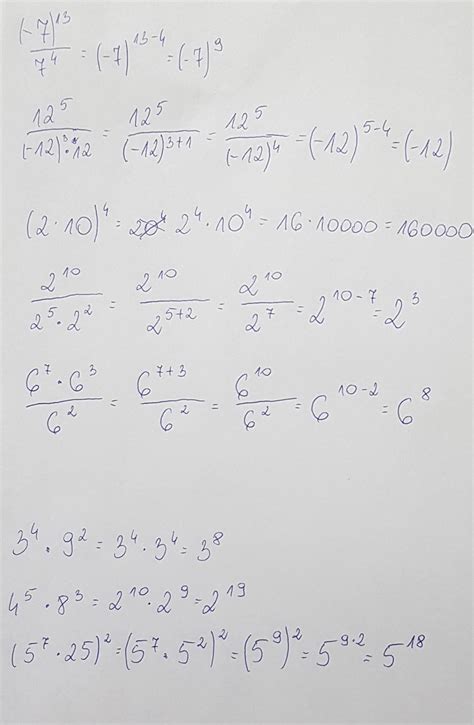 (-7)^13 / 7^4 = (-7)^13-4 = (-7)^9
12^5 / (-12)^3 · 12 = 12^5 / (-12)^3+1 = 12^5 / (-12)^4 = (-12)^5-4 = (-12)
(2·10)^4 = 2^4 · 10^4 = 16 · 10000 = 160000
2^10 / 2^5 · 2^2 = 2^10 / 2^5+2 = 2^10 / 2^7 = 2^10-7 = 2^3
6^7 · 6^3 / 6^2 = 6^7+3 / 6^2 = 6^10 / 6^2 = 6^10-2 = 6^8
3^4 · 9^2 = 3^4 · 3^4 = 3^8
4^5 · 8^3 = 2^10 · 2^9 = 2^19
(5^7 · 25)^2 = (5^7 · 5^2)^2 = (5^9)^2 = 5^9·2 = 5^18